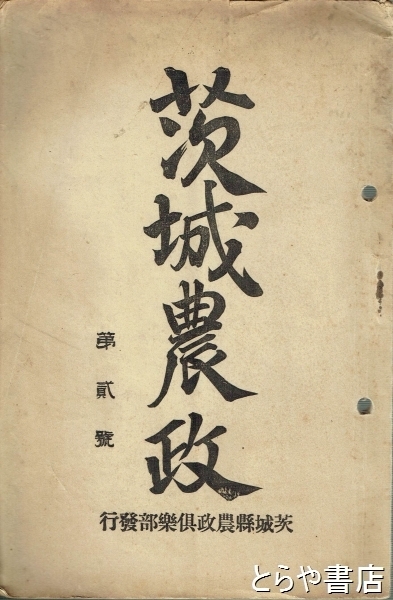 茨城農政
第貳號
茨城縣農政俱樂部發行
とらや書店